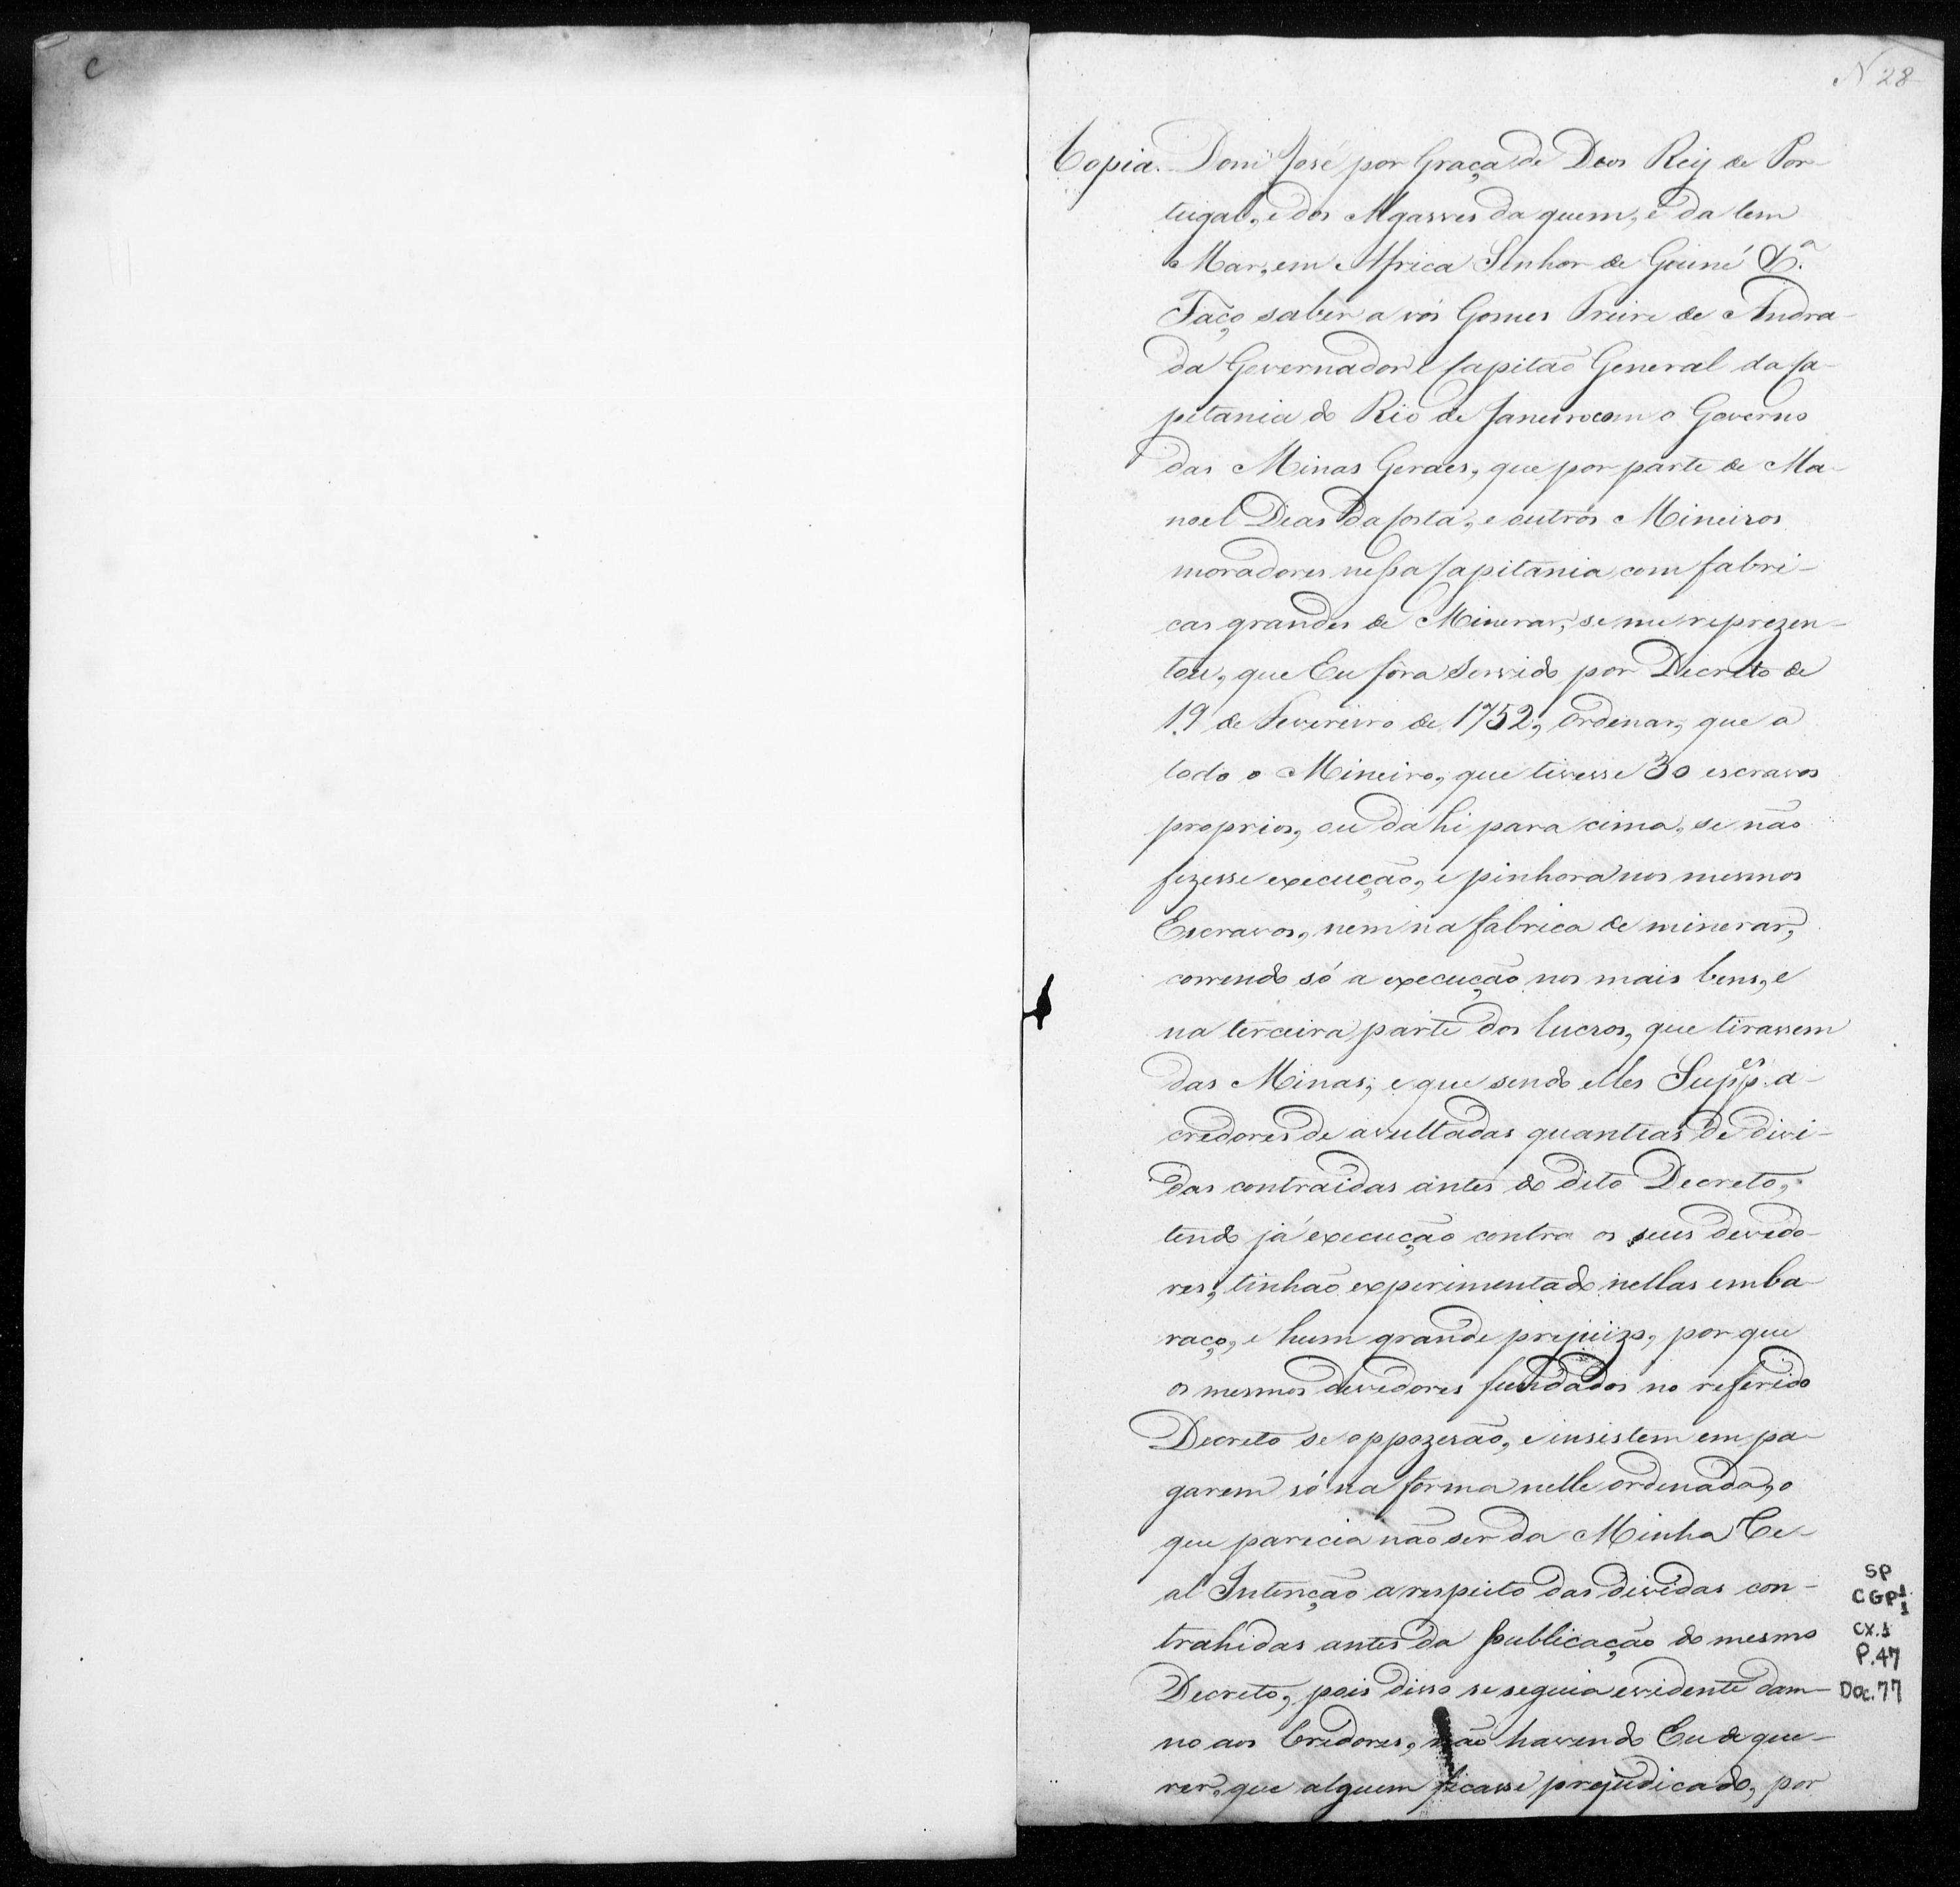 C
N 28
Copia. Dom José por Graça de Deos Rey de Por-
tugal, e dos Algarves da quem, e da lem
Mar, em Africa Senhor de Guiné &.ª
Faço saber a vós Gomes Freire de Andra-
da Governador e Capitão General da Ca-
pitania do Rio de Janeiro com o Governo
das Minas Geraes, que por parte de Ma-
noel Dias da Costa, e outros Mineiros
moradores nessa Capitania com fabri-
cas grandes de Minerar, se me reprezen-
tou, que Eu fôra servido por Decreto de
19 de Fevereiro de 1752, ordenar, que a
todo o Mineiro, que tivesse 30 escravos
proprios, ou dahi para cima, se não
fizesse execução, e pinhora nos mesmos
Escravos, nem na fabrica de minerar,
correndo só a execução nos mais bens, e
na terceira parte dos lucros, que tirassem
das Minas; e que sendo elles Supp.es a-
credores de avultadas quantias de divi-
das contraidas antes do dito Decreto,
tendo já execução contra os seus devedo-
res, tinhão experimentado nellas emba-
raço, e hum grande prejuizo, por que
os mesmos devedores fundados no referido
Decreto se oppozerão, e insistem em pa-
garem só na forma nelle ordenada, o
que parecia não ser da Minha Re-
al Intenção a respeito das dividas con-
trahidas antes da publicação do mesmo
Decreto, pois disso se seguia evidente dam-
no aos Credores, não havendo Eu de que-
rer, que alguem ficasse prejudicado, por
SP
CGP1.1
CX.1
P.47
Doc.77